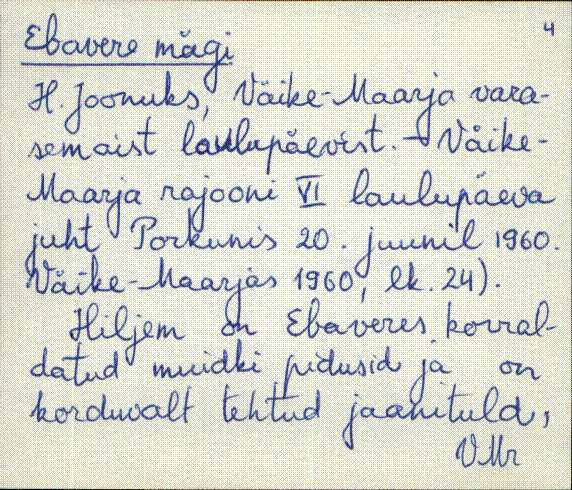 4
Ebavere mägi
H. Joonuks, Väike-Maarja vara-
semaist laulupäevist. - Väike-
Maarja rajooni VI laulupäeva
juht Porkunis 20. juunil 1960.
Väike-Maarjas 1960, lk. 24).
Hiljem on Ebaveres korral-
datud muidki pidusid ja on
korduvalt tehtud jaanituld,
VMr